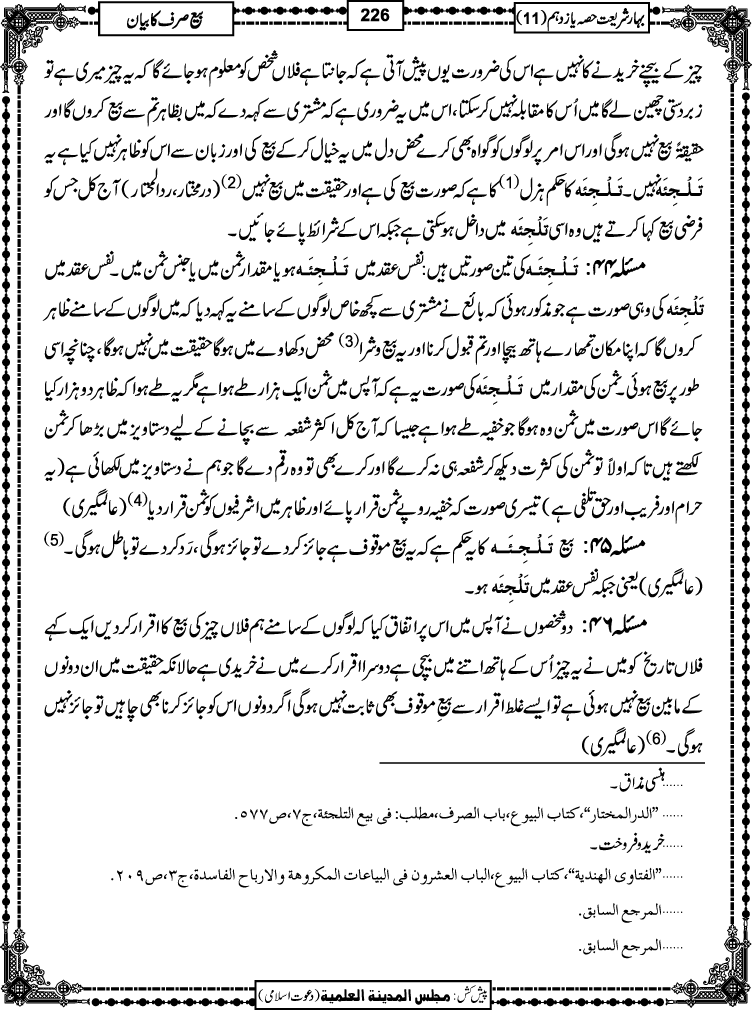 بہارِ شریعت حصہ یازدہم (11)
226
بیع صرف کا بیان
چیز کے بیچنے خریدنے کا نہیں ہے اس کی ضرورت یوں پیش آتی ہے کہ جانتا ہے فلاں شخص کو معلوم ہو جائے گا کہ یہ چیز میری ہے تو
زبردستی چھین لے گا میں اُس کا مقابلہ نہیں کر سکتا، اس میں یہ ضروری ہے کہ مشتری سے کہہ دے کہ میں بظاہر تم سے بیع کروں گا اور
حقیقۃً بیع نہیں ہوگی اور اس امر پر لوگوں کو گواہ بھی کرے محض دل میں یہ خیال کر کے بیع کی اور زبان سے اس کو ظاہر نہیں کیا ہے یہ
تَلْجِئَہ نہیں۔ تَلْجِئَہ کا حکم ہزل (1) کا ہے کہ صورت بیع کی ہے اور حقیقت میں بیع نہیں (2) (درمختار، ردالمحتار) آج کل جس کو
فرضی بیع کہا کرتے ہیں وہ اسی تَلْجِئَہ میں داخل ہو سکتی ہے جبکہ اس کے شرائط پائے جائیں۔
مسئلہ ۴۴: تَلْجِئَہ کی تین صورتیں ہیں: نفس عقد میں تَلْجِئَہ ہو یا مقدار ثمن میں یا جنس ثمن میں۔ نفس عقد میں
تَلْجِئَہ کی وہی صورت ہے جو مذکور ہوئی کہ بائع نے مشتری سے کچھ خاص لوگوں کے سامنے یہ کہہ دیا کہ میں لوگوں کے سامنے ظاہر
کروں گا کہ اپنا مکان تمھارے ہاتھ بیچا اور تم قبول کرنا اور یہ بیع و شرا (3) محض دکھاوے میں ہوگا حقیقت میں نہیں ہوگا، چنانچہ اسی
طور پر بیع ہوئی۔ ثمن کی مقدار میں تَلْجِئَہ کی صورت یہ ہے کہ آپس میں ثمن ایک ہزار طے ہوا ہے مگر یہ طے ہوا کہ ظاہر دو ہزار کیا
جائے گا اس صورت میں ثمن وہ ہوگا جو خفیہ طے ہوا ہے جیسا کہ آج کل اکثر شفعہ سے بچانے کے لیے دستاویز میں بڑھا کر ثمن
لکھتے ہیں تاکہ اولاً تو ثمن کی کثرت دیکھ کر شفعہ ہی نہ کرے گا اور کرے بھی تو وہ رقم دے گا جو ہم نے دستاویز میں لکھائی ہے (یہ
حرام اور فریب اور حق تلفی ہے) تیسری صورت کہ خفیہ روپے ثمن قرار پائے اور ظاہر میں اشرفیوں کو ثمن قرار دیا (4) (عالمگیری)
مسئلہ ۴۵: بیع تَلْجِئَہ کا یہ حکم ہے کہ یہ بیع موقوف ہے جائز کر دے تو جائز ہوگی، رَد کر دے تو باطل ہوگی۔ (5)
(عالمگیری) یعنی جبکہ نفس عقد میں تَلْجِئَہ ہو۔
مسئلہ ۴۶: دو شخصوں نے آپس میں اس پر اتفاق کیا کہ لوگوں کے سامنے ہم فلاں چیز کی بیع کا اقرار کر دیں ایک کہے
فلاں تاریخ کو میں نے یہ چیز اُس کے ہاتھ اتنے میں بیچی ہے دوسرا اقرار کرے میں نے خریدی ہے حالانکہ حقیقت میں ان دونوں
کے مابین بیع نہیں ہوئی ہے تو ایسے غلط اقرار سے بیعِ موقوف بھی ثابت نہیں ہوگی اگر دونوں اس کو جائز کرنا بھی چاہیں تو جائز نہیں
ہوگی۔ (6) (عالمگیری)
......ہنسی مذاق۔
......"الدرالمختار"، کتاب البیوع، باب الصرف، مطلب: فی بیع التلجئة، ج۷، ص۵۷۷.
......خرید و فروخت۔
......"الفتاوی الھندیة"، کتاب البیوع، الباب العشرون فی البیاعات المکروھة والارباح الفاسدة، ج۳، ص۲۰۹.
......المرجع السابق.
......المرجع السابق.
پیش کش: مجلس المدینة العلمیة (دعوتِ اسلامی)